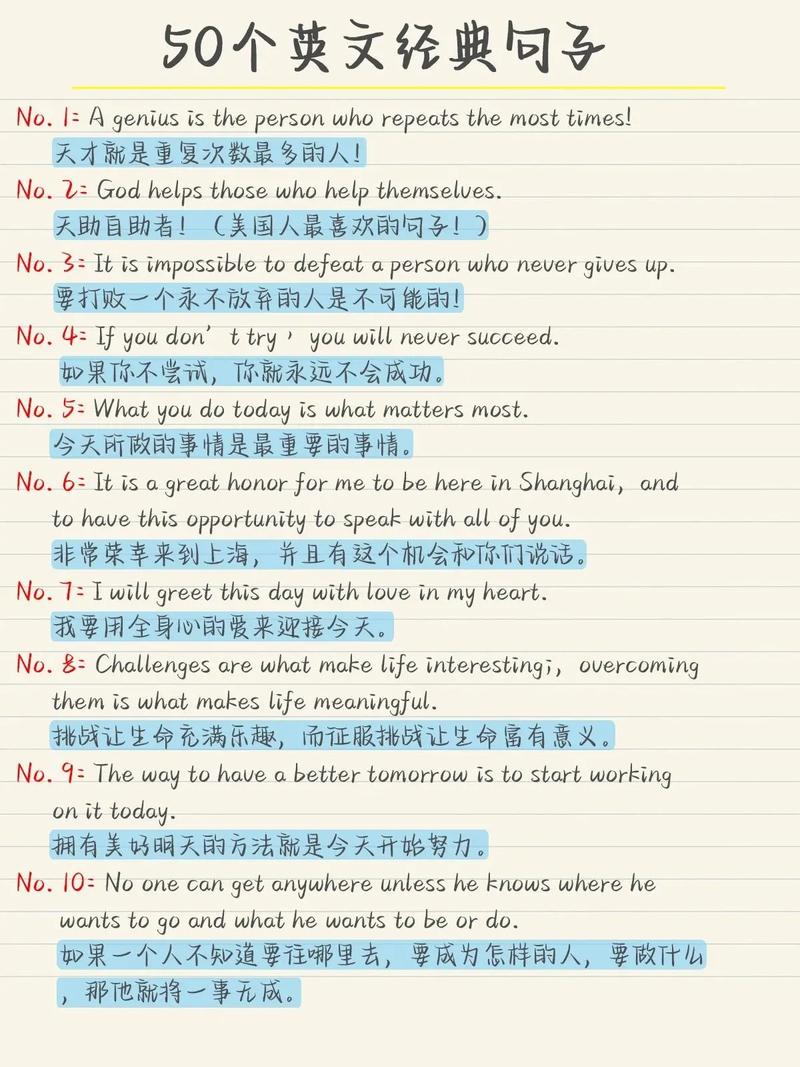 50个英文经典句子
No. 1: A genius is the person who repeats the most times!
天才就是重复次数最多的人!
No. 2: God helps those who help themselves.
天助自助者!(美国人最喜欢的句子!)
No. 3: It is impossible to defeat a person who never gives up.
要打败一个永不放弃的人是不可能的!
No. 4: If you don't try,you will never succeed.
如果你不尝试,你就永远不会成功。
No. 5: What you do today is what matters most.
今天所做的事情是最重要的事情。
No. 6: It is a great honor for me to be here in Shanghai, and
to have this opportunity to speak with all of you.
非常荣幸来到上海,并且有这个机会和你们说话。
No. 7: I will greet this day with love in my heart.
我要用全身心的爱来迎接今天。
No. 8: Challenges are what make life interesting;, overcoming
them is what makes life meaningful.
挑战让生命充满乐趣,而征服挑战让生命富有意义。
No. 9: The way to have a better tomorrow is to start working
on it today.
拥有美好明天的方法就是今天开始努力。
No. 10: No one can get anywhere unless he knows where he
wants to go and what he wants to be or do.
如果一个人不知道要往哪里去,要成为怎样的人,要做什么
,那他就将一事无成。